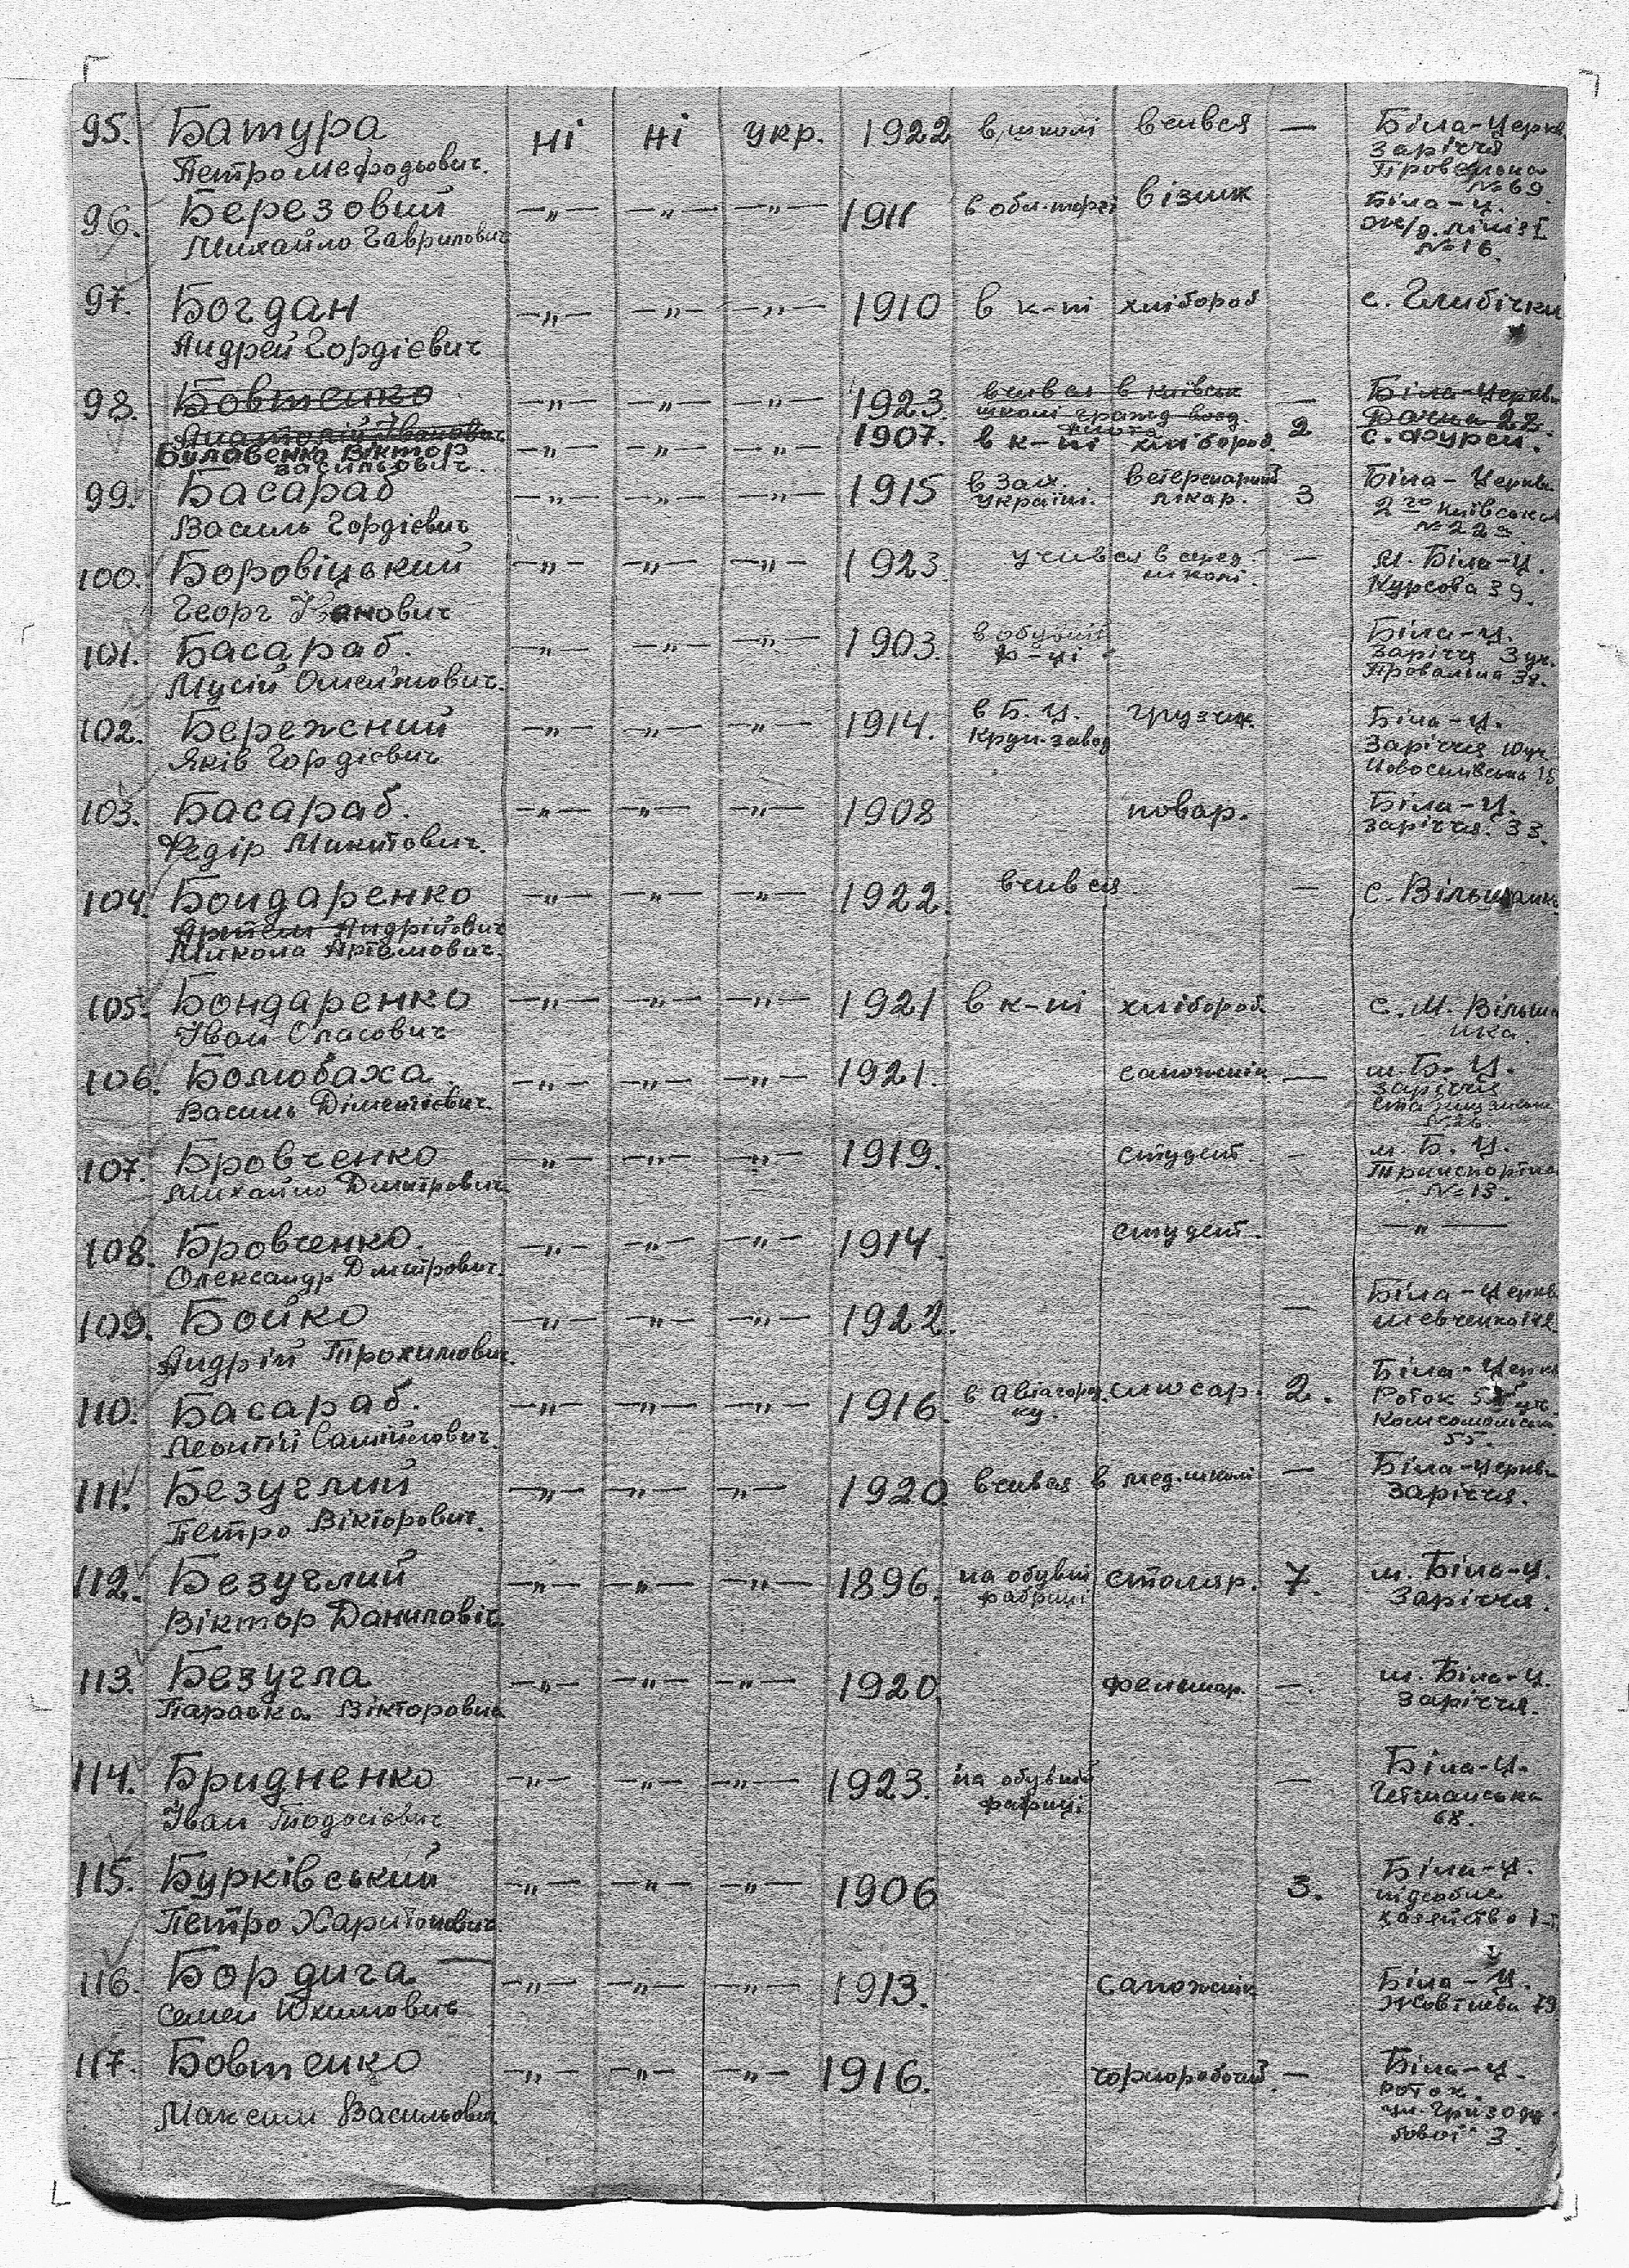 95. Батура ні ні укр. 1922 в школі вчився — Біла-Церкв
Петро Мефодьович. Заріччя
№ 69
96. Березовий —„— —„— —„— 1911 візник Біла-Ц.
Михайло Гаврилович № 16.
97. Богдан —„— —„— —„— 1910 в к-пі хлібороб с. Глибічки
Андрей Гордієвич
98. Бовтенко —„— —„— —„— 1923. вчився в київськ — Біла-Церкв
Анатолій Іванович школі Дачна 22.
Булавенко Віктор —„— —„— —„— 1907. в к-пі хлібороб. 2 с. Фурси.
Васильович.
99. Басараб —„— —„— —„— 1915 в Зах. ветеренарний 3 Біла-Церква
Василь Гордієвич україні. лікар. 2го Київська
№ 22а
100. Боровіцький —„— —„— —„— 1923. учився в серед. — м. Біла-Ц.
Георг Іванович школі. Курсова 39.
101. Басараб. —„— —„— —„— 1903. в обувній Біла-Ц.
Мусій ф-ці Заріччя 3 уч.
Провальна
102. Бережний —„— —„— —„— 1914. в Б. Ц. грузчик. Біла-Ц.
Яків Гордієвич Круп-завод Заріччя
103. Басараб. —„— —„— —„— 1908 повар. Біла-Ц.
Федір Микитович. Заріччя. 33.
104. Бондаренко —„— —„— —„— 1922. вчився — с. Вільшанка
Артем Андрійович
Микола Артемович.
105. Бондаренко —„— —„— —„— 1921 в к-пі хлібороб. с. М. Вільша
Іван Опасович нка.
106. Болюбаха —„— —„— —„— 1921. сапожнік — м. Б. Ц.
Василь Заріччя
107. Бровченко —„— —„— —„— 1919. студент. — м. Б. Ц.
Михайло Дмитрович Транспортна
№ 13.
108. Бровченко. —„— —„— —„— 1914. студент. —„—
Олександр Дмитрович.
109. Бойко —„— —„— —„— 1922. — Біла-Церкв
Андрій Трохимович. Шевченка
110. Басараб. —„— —„— —„— 1916. слюсар. 2. Біла-Церкв
Леонтій Роток
Комсомольська
55.
111. Безуглий —„— —„— —„— 1920. вчився в мед.школі — Біла-Церкв
Петро Вікторович. Заріччя.
112. Безуглий —„— —„— —„— 1896. на обувній столяр. 7. м. Біла-Ц.
Віктор Даниловіч. фабриці Заріччя.
113. Безугла —„— —„— —„— 1920. фельшар. — м. Біла-Ц.
Параска Вікторовна Заріччя.
114. Бридненко —„— —„— —„— 1923. на обувній — Біла-Ц.
Іван Тодосієвич фабриці Гетманська
68.
115. Бурківський —„— —„— —„— 1906 3. Біла-Ц.
Петро Харитонович підсобне
хазяйство
116. Бордига —„— —„— —„— 1913. сапожнік Біла-Ц.
Семен Юхимович Жовтнева 79
117. Бовтенко —„— —„— —„— 1916. чорноробочий — Біла-Ц.
Максим Васильович Роток.
ул. Гризоду-
бової 3.